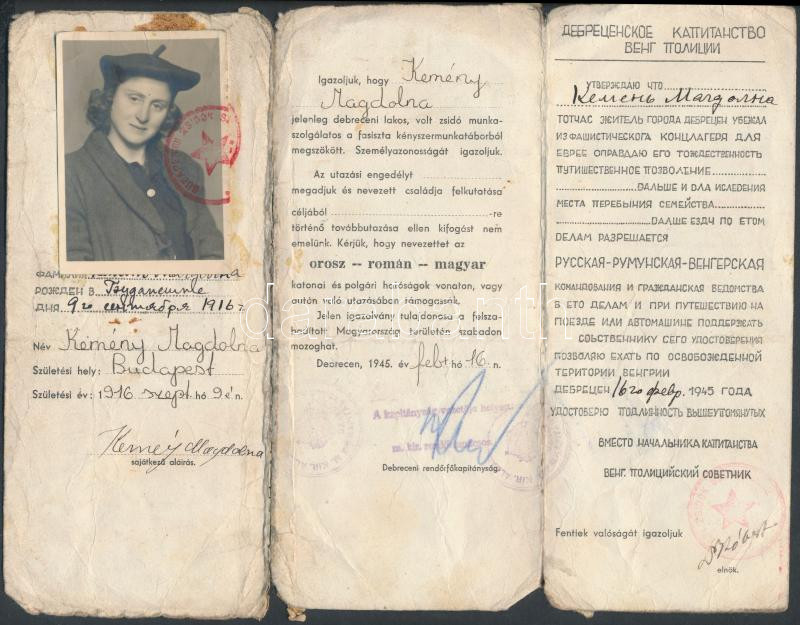 ФАМИЛИЯ
РОЖДЕН В. Будапеште
ДНЯ 9го сентября 1916 г.
Név Kemény Magdolna
Születési hely: Budapest
Születési év: 1916 szept hó 9 é n.
Kemény Magdolna
sajátkezű aláírás.
Igazoljuk, hogy Kemény
Magdolna
jelenleg debreceni lakos, volt zsidó munka-
szolgálatos a fasiszta kényszermunkatáborból
megszökött. Személyazonosságát igazoljuk.
Az utazási engedélyt
megadjuk és nevezett családja felkutatása
céljából -re
történő továbbutazása ellen kifogást nem
emelünk. Kérjük, hogy nevezettet az
orosz -- román -- magyar
katonai és polgári hatóságok vonaton, vagy
autón való utazásában támogassák.
Jelen igazolvány tulajdonosa a felsza-
badított Magyarország területén szabadon
mozoghat.
Debrecen, 1945. év febr hó 16 n.
A kapitányság vezetője helyett:
Debreceni rendőrfőkapitányság.
ДЕБРЕЦЕНСКОЕ КАПИТАНСТВО
ВЕНГ ПОЛИЦИИ
УТВЕРЖДАЮ ЧТО
Кемень Магдолна
ТОТЧАС ЖИТЕЛЬ ГОРОДА ДЕБРЕЦЕН УБЕЖАЛ
ИЗ ФАШИСТИЧЕСКОГО КОНЦЛАГЕРЯ ДЛЯ
ЕВРЕЕ ОПРАВДАЮ ЕГО ТОЖДЕСТВЕННОСТЬ
ПУТИШЕСТВЕННОЕ ПОЗВОЛЕНИЕ
ДАЛЬШЕ И DЛА ИСЛЕДЕНИЯ
МЕСТА ПЕРЕБЫНИЯ СЕМЕЙСТВА
DАЛШЕ ЕЗDЧ ПО ЕТОМ
DЕЛАМ РАЗРЕШАЕТСЯ
РУССКАЯ-РУМУНСКАЯ-ВЕНГЕРСКАЯ
КОМАНДОВАНИЯ И ГРАЖДАНСКАЯ ВЕДОМСТВА
В ЕГО ДЕЛАМ И ПРИ ПУТЕШЕСТВИЮ НА
ПОЕЗДЕ ИЛИ АВТОМАШИНЕ ПОДДЕРЖАТЬ
СОБСТВЕННИКУ СЕГО УДОСТОВЕРЕНИЯ
ПОЗВОЛЯЮ ЕХАТЬ ПО ОСВОБОЖДЕННОЙ
ТЕРИТОРИИ ВЕНГРИИ
ДЕБРЕЦЕН 16го февр. 1945 ГОДА
УДОСТОВЕРЮ ПОДЛИННОТЬ ВЫШЕУПОМЯНУТЫХ
ВМЕСТО НАЧАЛЬНИКА КАПИТАНСТВА
ВЕНГ. ПОЛИЦИЙСКИЙ СОВЕТНИК
Fentiek valóságát igazoljuk
elnök.